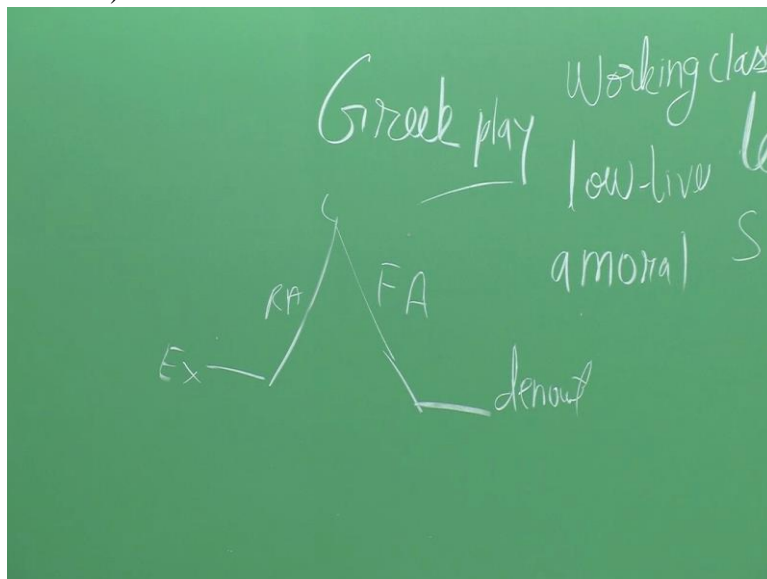 Greek play
Working clas
low-live
amoral
S
C
RA
FA
Ex
denout